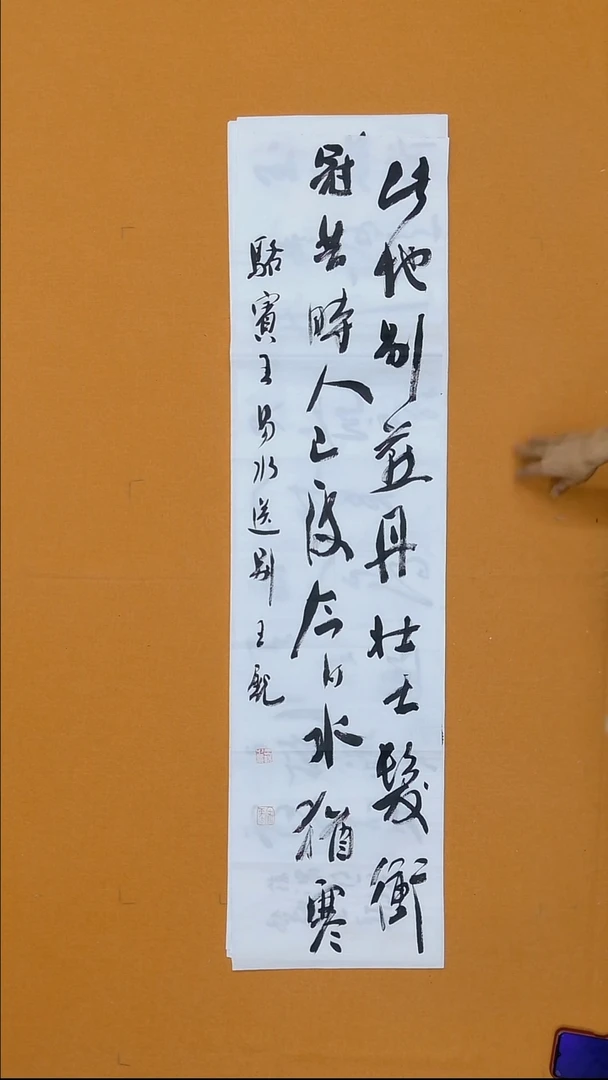 此地别燕丹壮士髮衝
冠昔時人已没今日水猶寒
駱賓王易水送别王